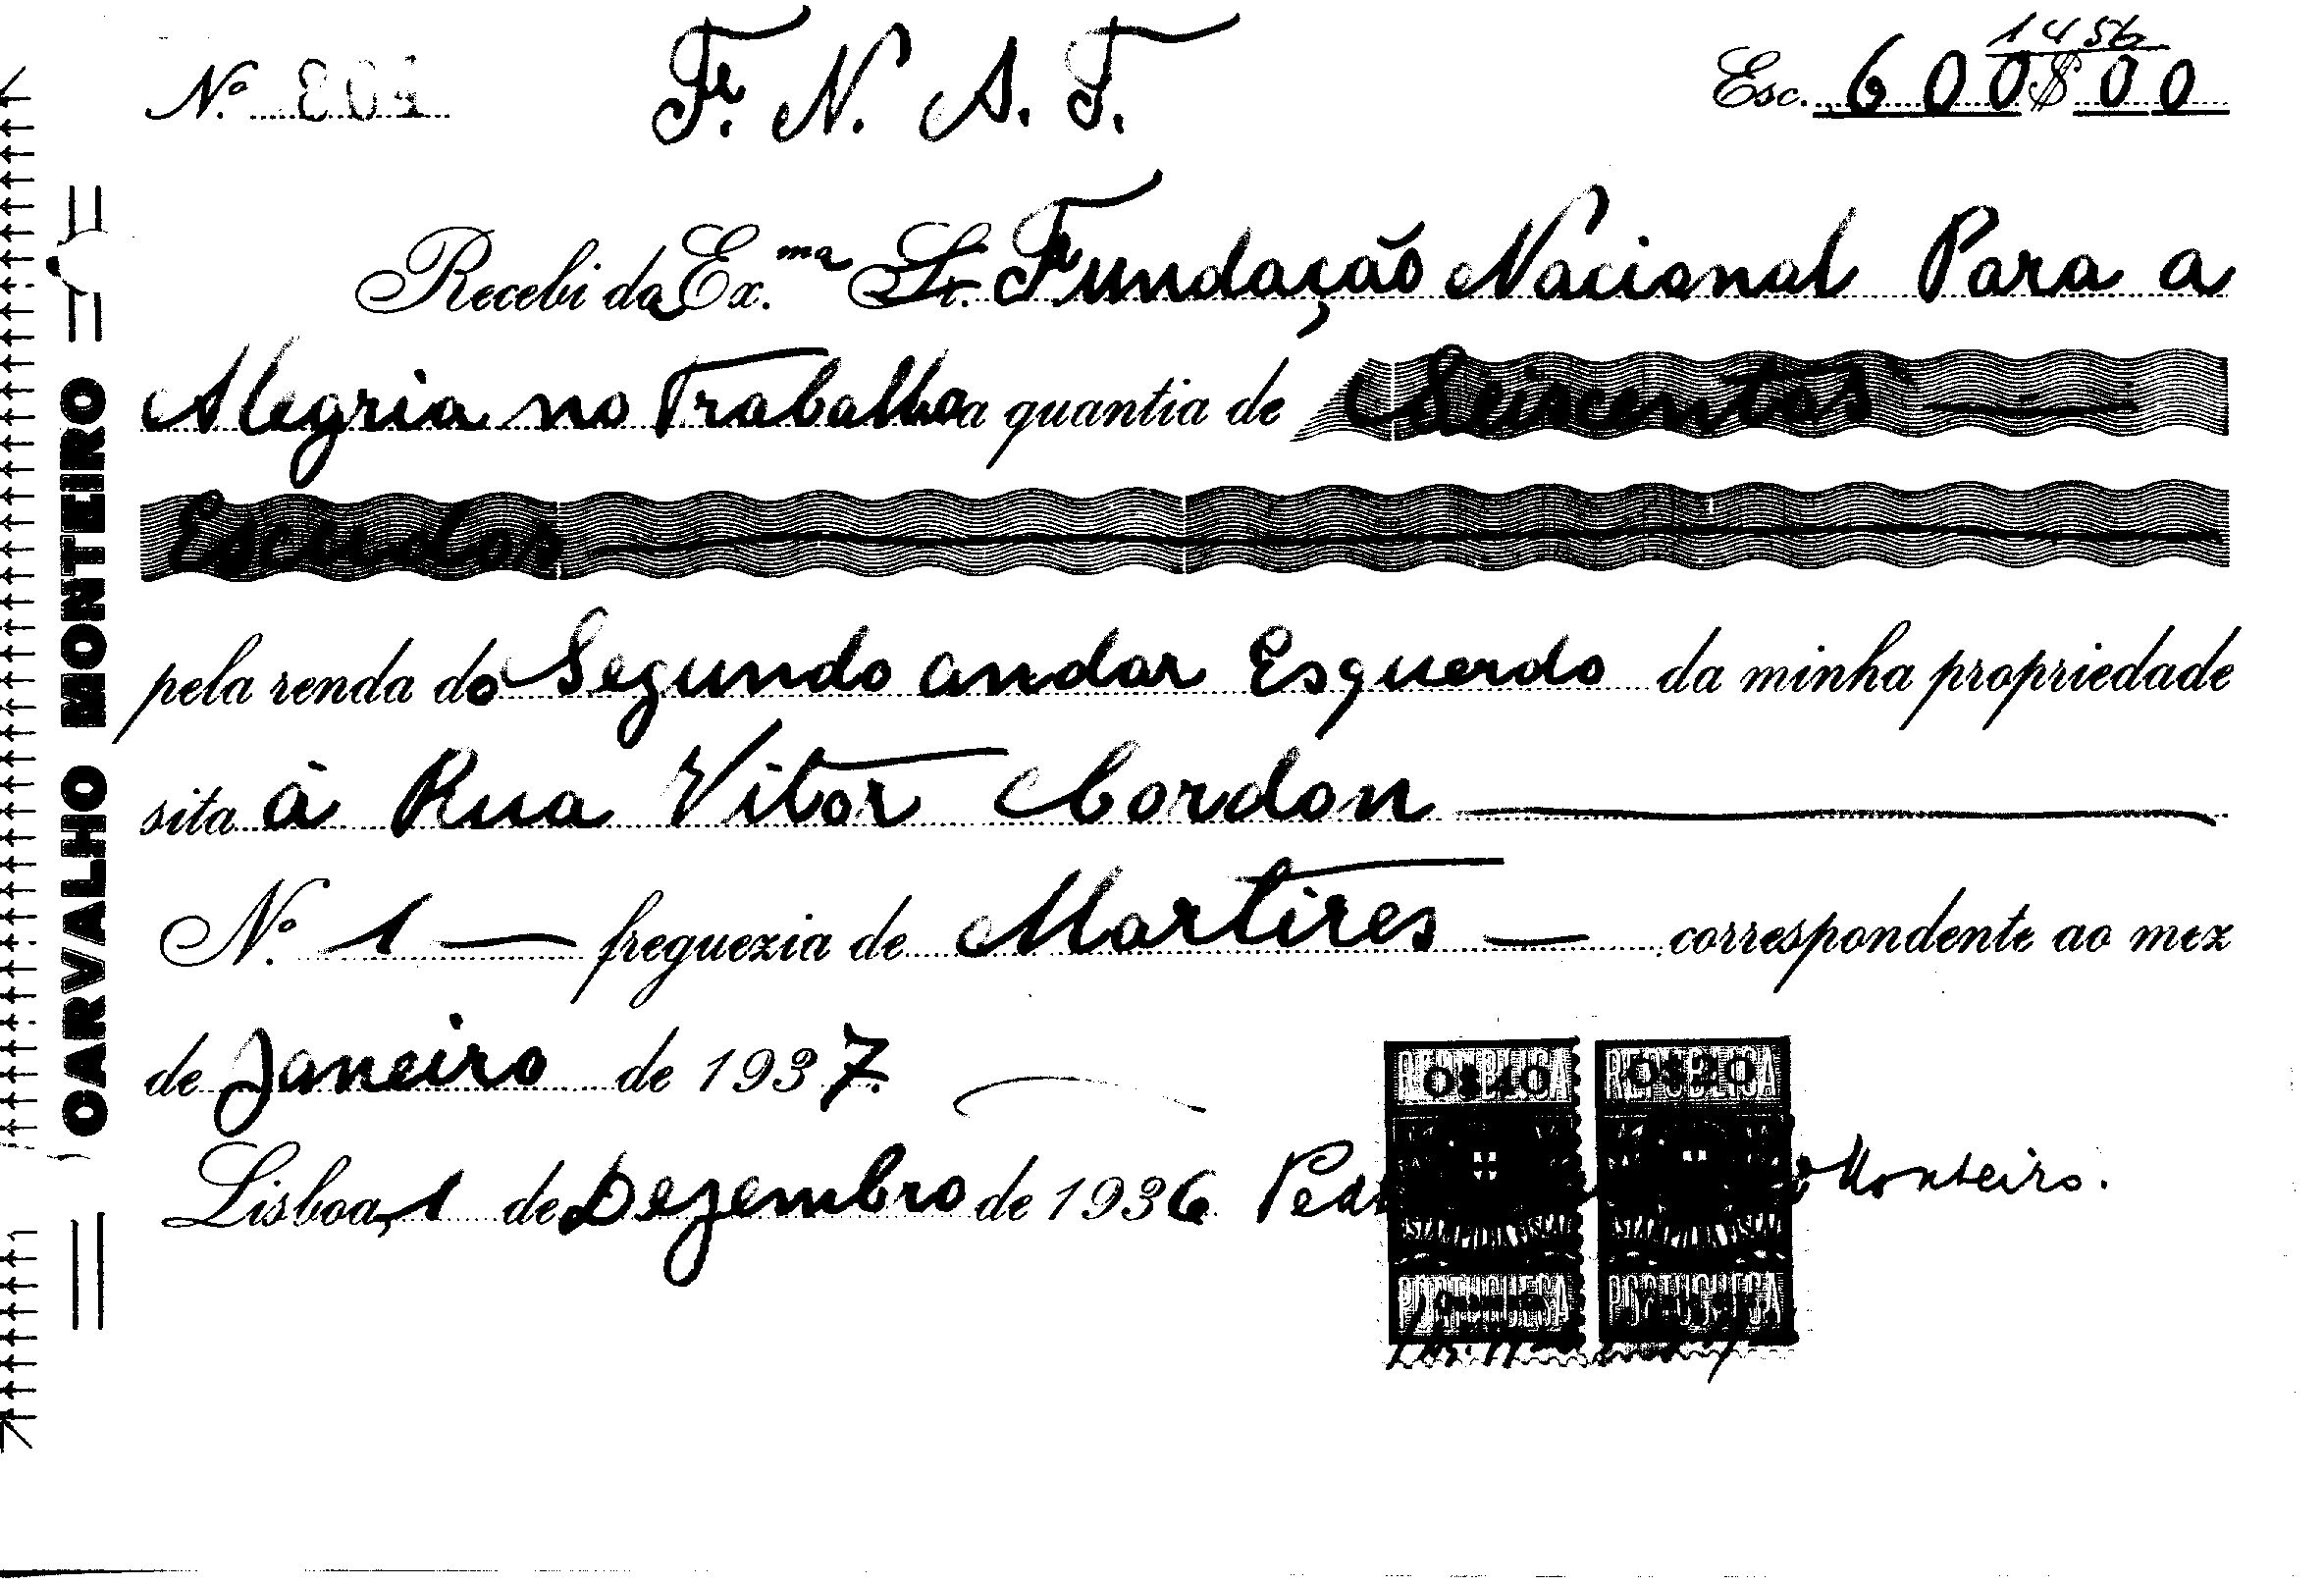 Nº 804 F. N. A. T. Esc. 600$00
1456
Recebi da Ex.ma Sr. Fundação Nacional Para a
Alegria no Trabalho a quantia de Seiscentos
Escudos
pela renda do Segundo andar Esquerdo da minha propriedade
sita à Rua Vitor Cordon
Nº 1 freguezia de Martires correspondente ao mez
de Janeiro de 1937.
Lisboa, 1 de Dezembro de 1936 Monteiro.
CARVALHO MONTEIRO
REPUBLICA
0$40
ESTAMPILHA FISCAL
PORTUGUESA
REPUBLICA
0$20
ESTAMPILHA FISCAL
PORTUGUESA